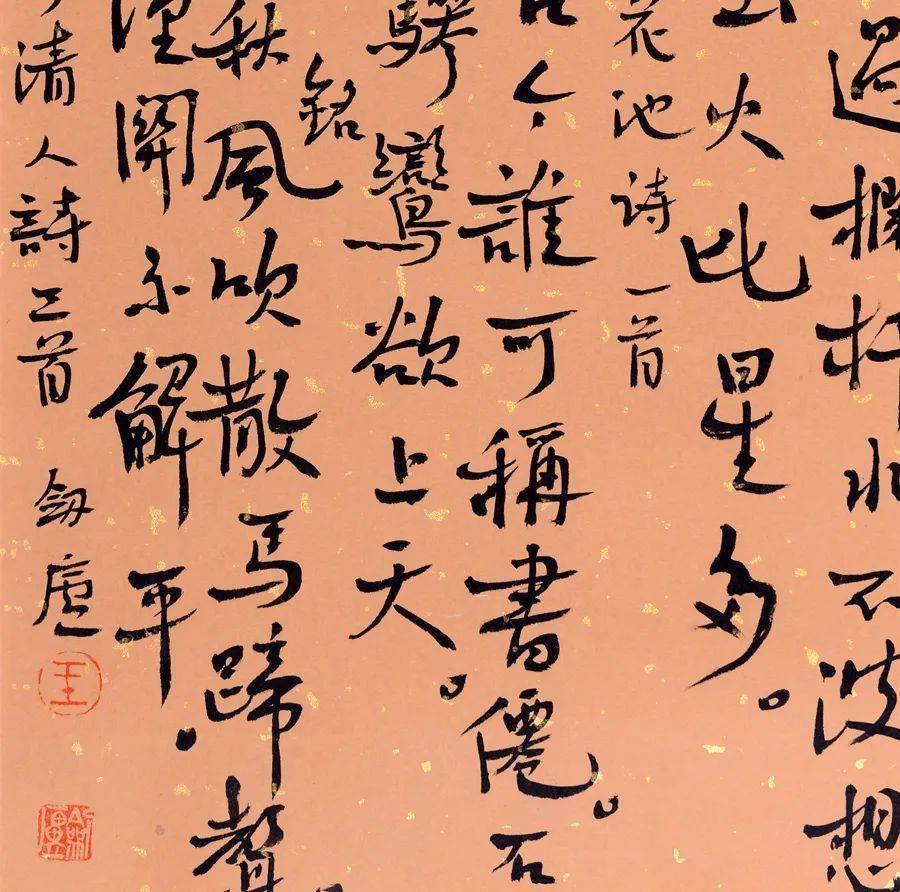 過杆水不波想
火比星多。
花池诗一首
今誰可稱書僊。石
驂鸞欲上天。
銘
秋風吹散馬蹄聲
潼關不解平。
清人詩三首 劒廬
王